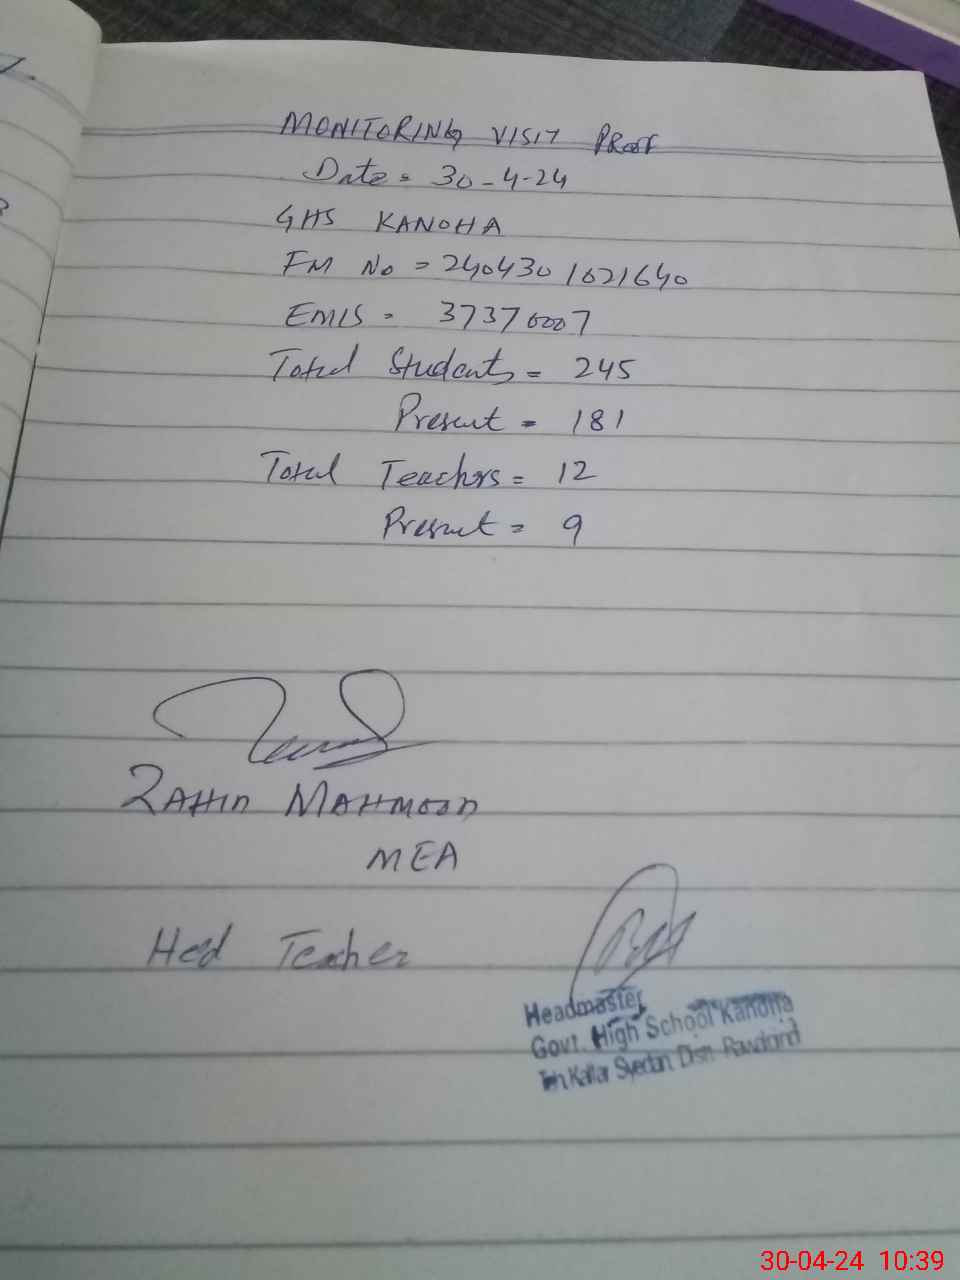 MONITORING VISIT PROOF
Date = 30-4-24
GHS KANOHA
FM No = 2404301021640
EMIS = 37370007
Total Students = 245
Present = 181
Total Teachers = 12
Present = 9
ZAHID MAHMOOD
MEA
Hed Teacher
Headmaster
Govt. High School Kanoha
Teh. Kallar Syedan Distt. Rawalpindi
30-04-24 10:39